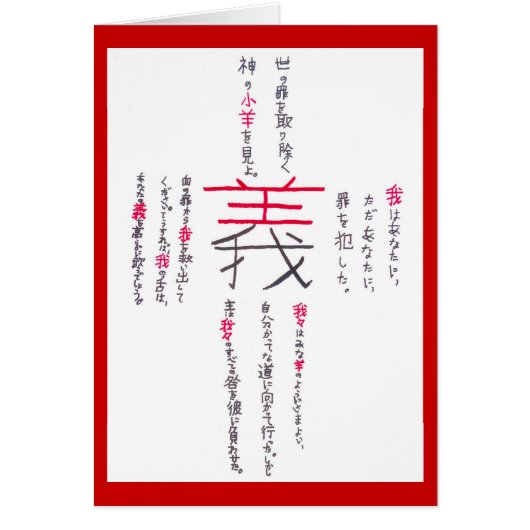 世の罪を取り除く
神の小羊を見よ。
我はあなたに、
ただあなたに、
罪を犯した。
義
血の罪から我を救い出して
ください。そうすれば、我の舌は、
あなたの義を高らかに歌うでしょう。
我々はみな羊のようにさまよい、
自分かってな道に向かって行った。しかし
主は我々のすべての咎を彼に負わせた。